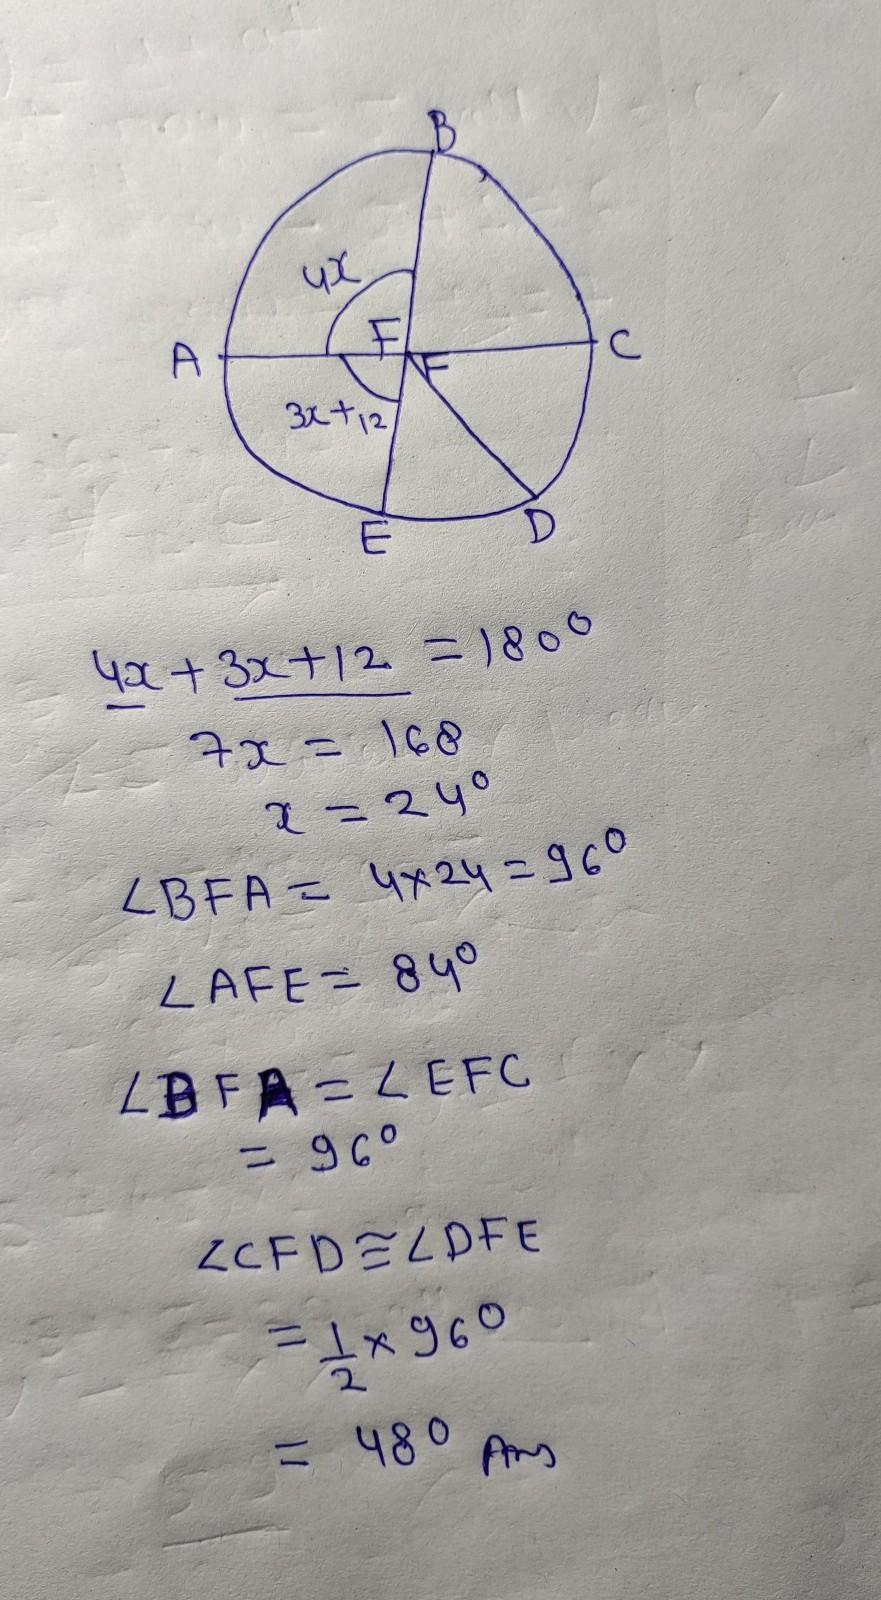 B
4x
F
A
C
F
3x+12
E
D
4x + 3x+12 = 180°
7x = 168
x = 24°
∠BFA = 4×24 = 96°
∠AFE = 84°
∠BFA = ∠EFC
= 96°
∠CFD ≅ ∠DFE
= 1/2 × 96°
= 48° Ans